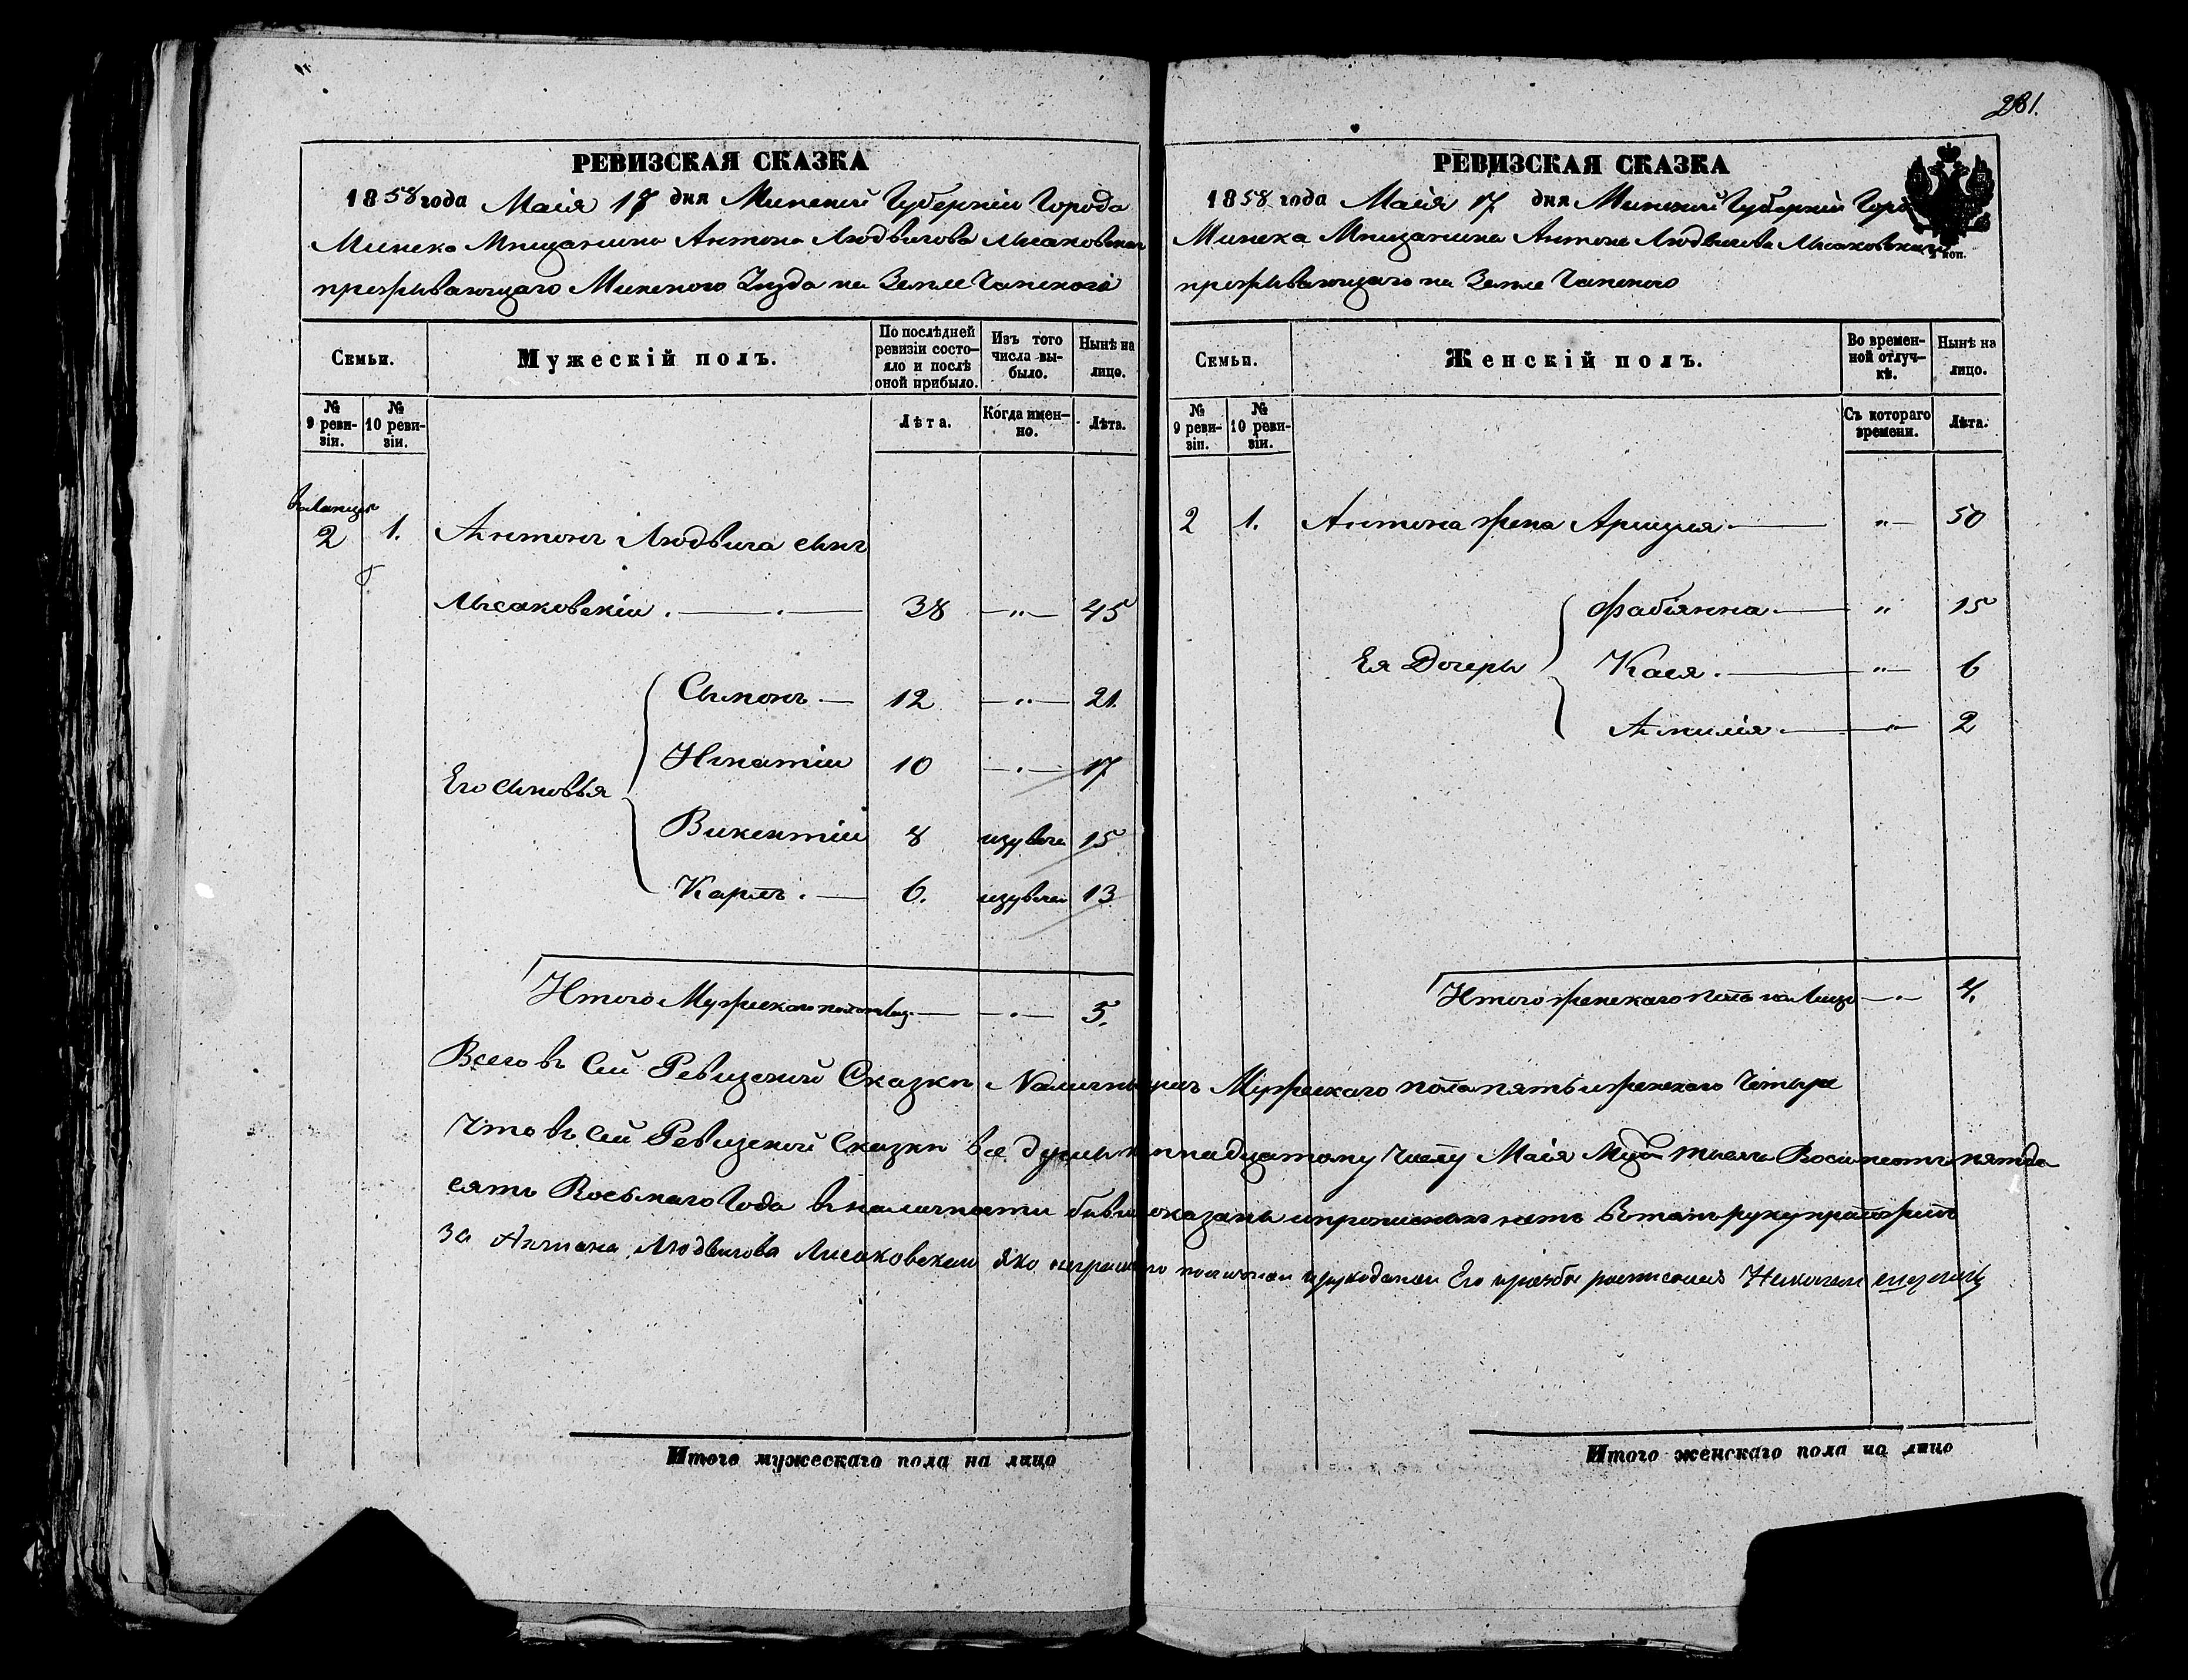 281.
РЕВИЗСКАЯ СКАЗКА
1858 года Маія 17 дня Минской Губерніи Города
Минска Мѣщанина Антона Людвигова Лысаковскаго
проживающаго Минского Уезда на Земле Чапского
Семьи.
Мужескій полъ.
По послѣдней ревизіи состо-
яло и послѣ оной прибыло.
Изъ того числа вы-
было.
Нынѣ на лицо.
№ 9 реви-
зіи.
№ 10 реви-
зіи.
Лѣта.
Когда имен-
но.
Лѣта.
2 1. Антонъ Людвига сынъ
Лысаковскій . — . — 38 — „ — 45
Его сыновья
Сымонъ — 12 — „ — 21.
Игнатій 10 — „ — 17
Викентій 8 15
Карлъ . — 6. 13
Итого Мужескаго пола на лиц. — „ — 5.
РЕВИЗСКАЯ СКАЗКА
1858 года Маія 17 дня Минской Губерніи Горо
Минска Мѣщанина Антона Людвигова Лысаковскаго
проживающаго на Земле Чапского
коп.
Семьи.
Женскій полъ.
Во времен-
ной отлуч-
кѣ.
Нынѣ на лицо.
№ 9 реви-
зіи.
№ 10 реви-
зіи.
Съ котораго времени.
Лѣта.
2 1. Антона жена — „ — 50
Ея Дочеры
Фабіянна — „ 15
Кася . — „ — 6
Амилія . — „ — 2
Итого женскаго пола на Лицо — „ — 4.
Всего въ Сей Ревизской Сказкѣ Наличныхъ Мужескаго пола пять и женскаго Четыре
Что въ сей Ревизской Сказкѣ все души надцатому Числу Маія Тысяча Восимсотъ пятьде
сятъ Восьмаго Года въ наличности показаны и прописныхъ нетъ въ томъ руку
За Антона Людвигова Лисаковскаго яко неграмотного Его прозбе росписался
Итого мужескаго пола на лицо
Итого женскаго пола на лицо